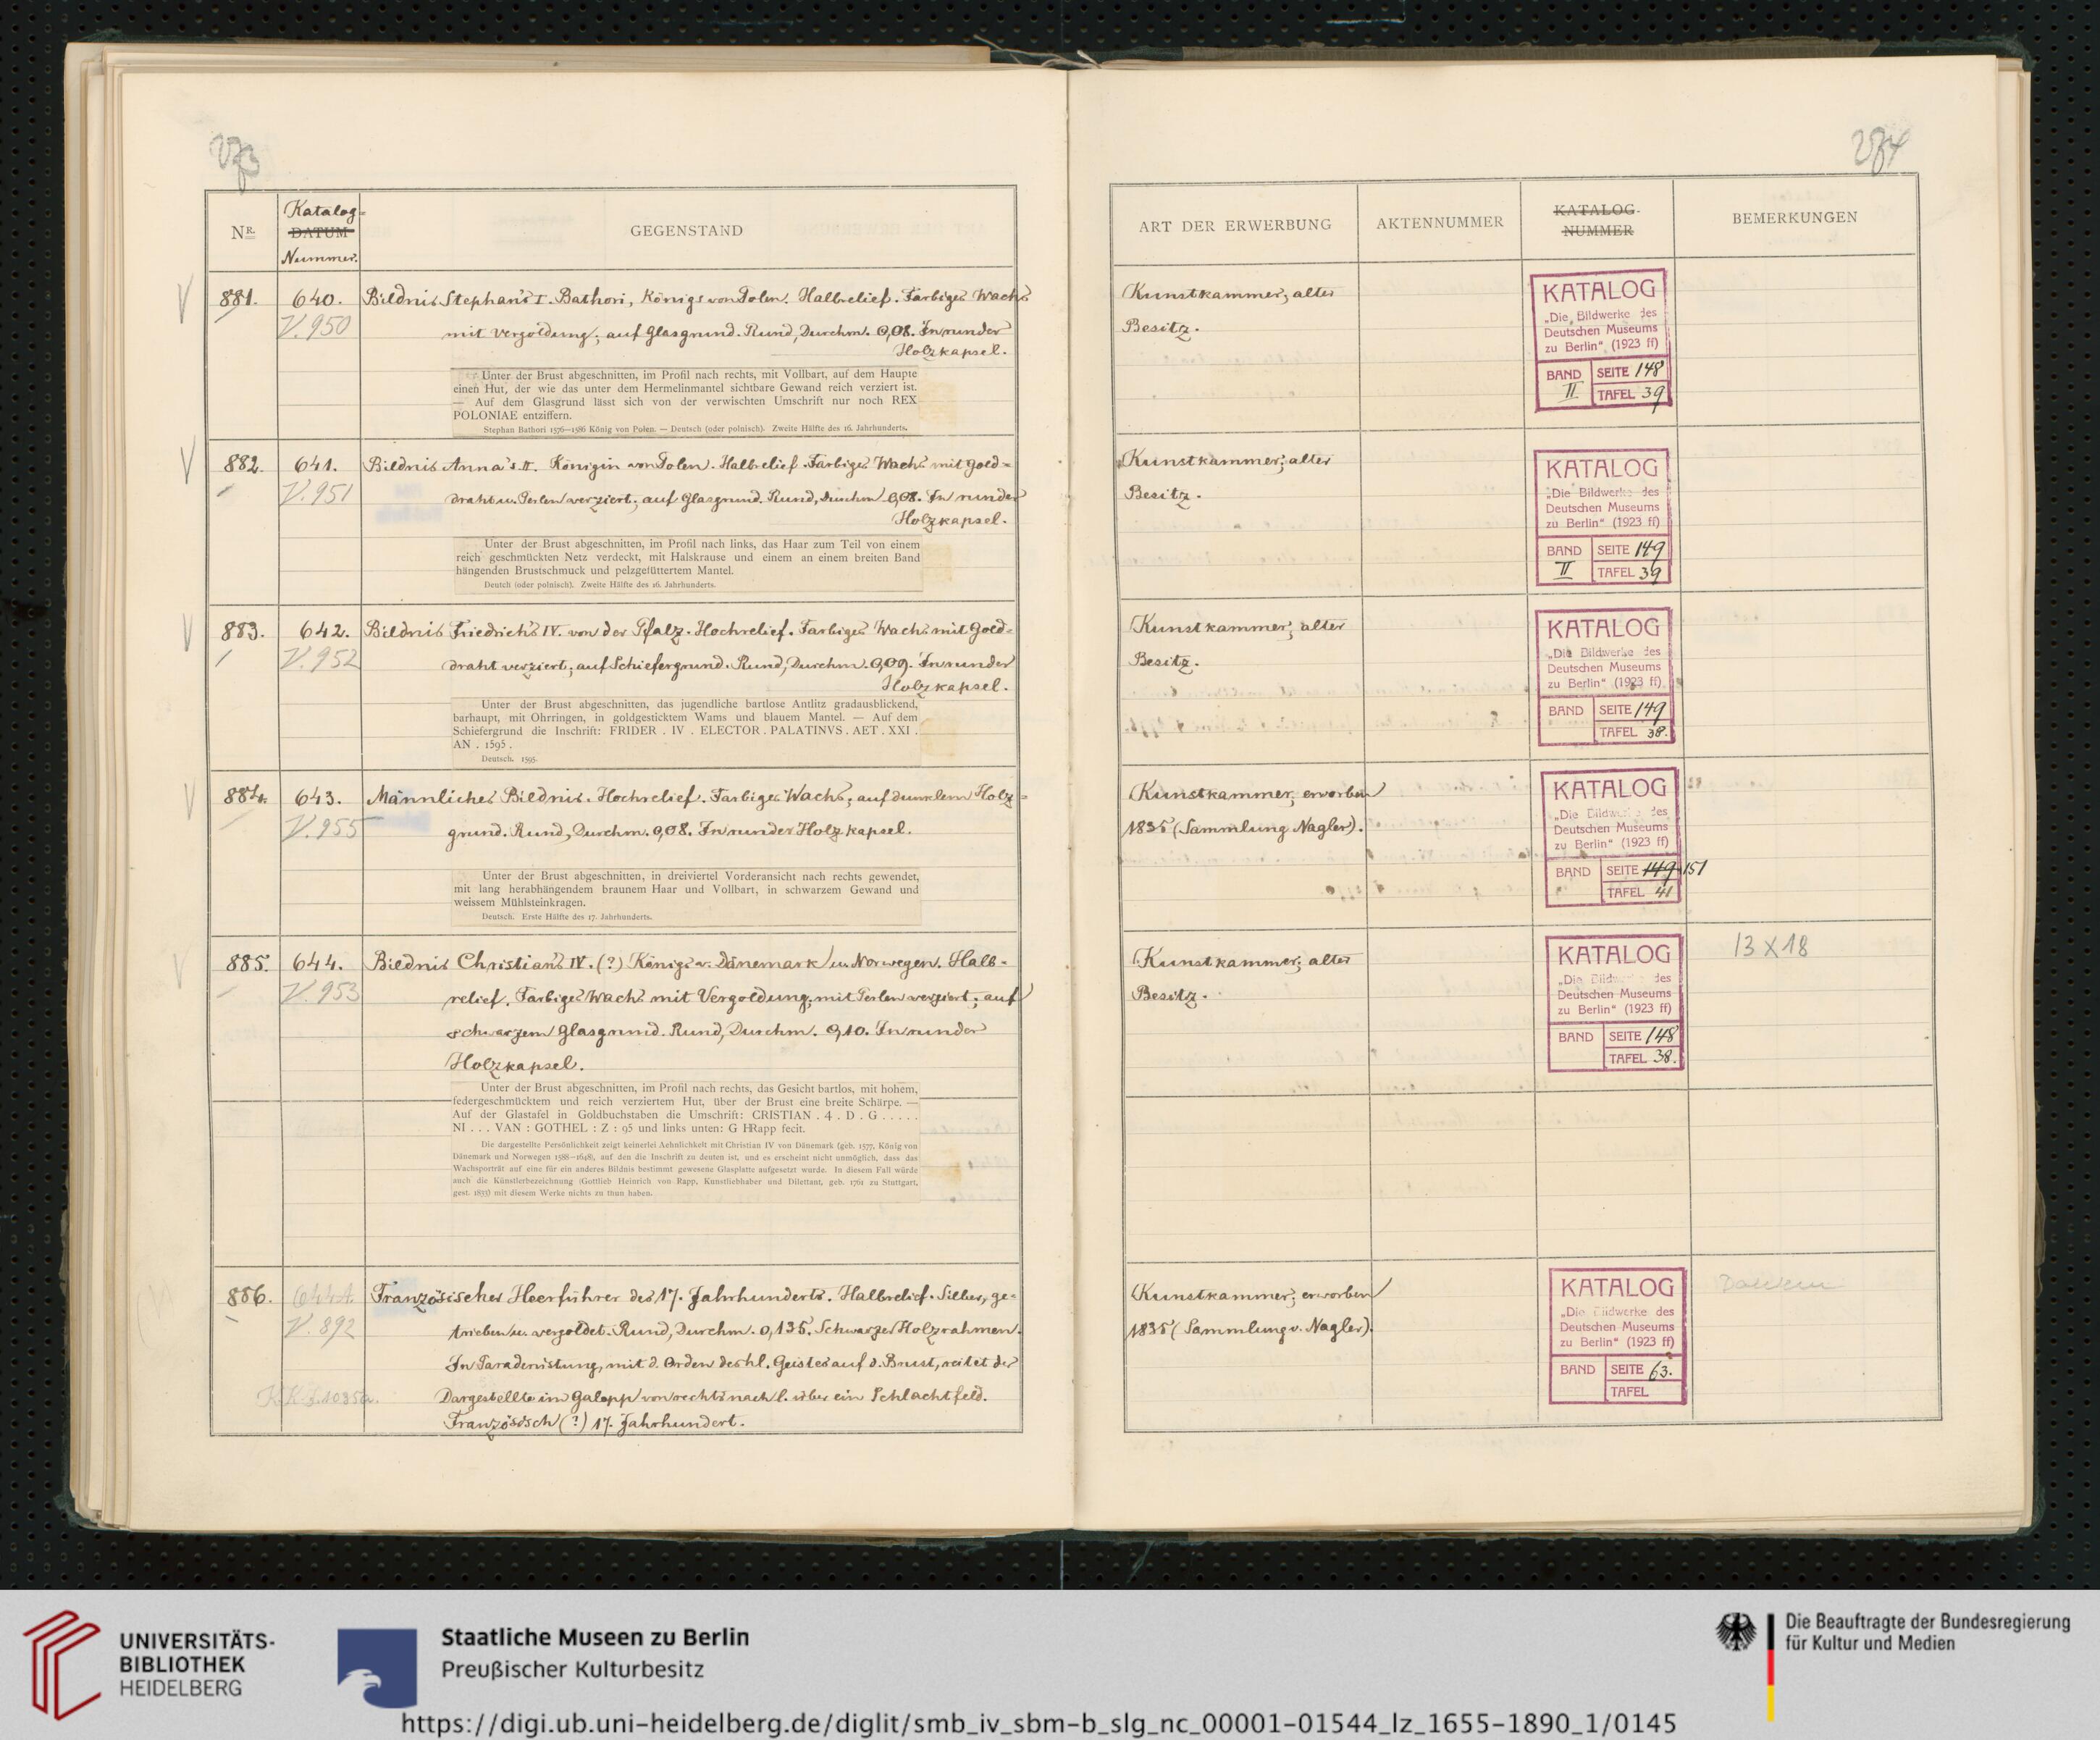 273
274
NR.
Katalog-
DATUM
Nummer.
GEGENSTAND
ART DER ERWERBUNG
AKTENNUMMER
KATALOG-
NUMMER
BEMERKUNGEN
881.
640.
V. 950
Bildnis Stephan's I. Bathori, Königs von Polen. Halbrelief. Farbiges Wachs
mit Vergoldung; auf Glasgrund. Rund, Durchm. 0,08. In runder
Holzkapsel.
Unter der Brust abgeschnitten, im Profil nach rechts, mit Vollbart, auf dem Haupte
einen Hut, der wie das unter dem Hermelinmantel sichtbare Gewand reich verziert ist.
— Auf dem Glasgrund lässt sich von der verwischten Umschrift nur noch REX
POLONIAE entziffern.
Stephan Bathori 1576—1586 König von Polen. — Deutsch (oder polnisch). Zweite Hälfte des 16. Jahrhunderts.
Kunstkammer; alter
Besitz.
KATALOG
„Die Bildwerke des
Deutschen Museums
zu Berlin“ (1923 ff)
BAND II SEITE 148
TAFEL 39
882.
641.
V. 951
Bildnis Anna's II. Königin von Polen. Halbrelief. Farbiges Wachs mit Gold-
draht u. Perlen verziert; auf Glasgrund. Rund, Durchm 0,08. In runder
Holzkapsel.
Unter der Brust abgeschnitten, im Profil nach links, das Haar zum Teil von einem
reich geschmückten Netz verdeckt, mit Halskrause und einem an einem breiten Band
hängenden Brustschmuck und pelzgefüttertem Mantel.
Deutch (oder polnisch). Zweite Hälfte des 16. Jahrhunderts.
Kunstkammer; alter
Besitz.
KATALOG
„Die Bildwerke des
Deutschen Museums
zu Berlin“ (1923 ff)
BAND II SEITE 149
TAFEL 39
883.
642.
V. 952
Bildnis Friedrichs IV. von der Pfalz. Hochrelief. Farbiges Wachs mit Gold-
draht verziert; auf Schiefergrund. Rund, Durchm. 0,09. In runder
Holzkapsel.
Unter der Brust abgeschnitten, das jugendliche bartlose Antlitz gradausblickend,
barhaupt, mit Ohrringen, in goldgesticktem Wams und blauem Mantel. — Auf dem
Schiefergrund die Inschrift: FRIDER . IV . ELECTOR . PALATINVS . AET . XXI .
AN . 1595 .
Deutsch. 1595.
Kunstkammer; alter
Besitz.
KATALOG
„Die Bildwerke des
Deutschen Museums
zu Berlin“ (1923 ff)
BAND SEITE 149
TAFEL 38.
884.
643.
V. 955
Männliches Bildnis. Hochrelief. Farbiges Wachs; auf dunklem Holz-
grund. Rund, Durchm. 0,08. In runder Holzkapsel.
Unter der Brust abgeschnitten, in dreiviertel Vorderansicht nach rechts gewendet,
mit lang herabhängendem braunem Haar und Vollbart, in schwarzem Gewand und
weissem Mühlsteinkragen.
Deutsch. Erste Hälfte des 17. Jahrhunderts.
Kunstkammer; erworben
1835 (Sammlung Nagler).
KATALOG
„Die Bildwerke des
Deutschen Museums
zu Berlin“ (1923 ff)
BAND SEITE 149 151
TAFEL 41
885.
644.
V. 953
Bildnis Christian's IV. (?) Königs v. Dänemark u. Norwegen. Halb-
relief. Farbiges Wachs mit Vergoldung, mit Perlen verziert; auf
schwarzem Glasgrund. Rund, Durchm. 0,10. In runder
Holzkapsel.
Unter der Brust abgeschnitten, im Profil nach rechts, das Gesicht bartlos, mit hohem,
federgeschmücktem und reich verziertem Hut, über der Brust eine breite Schärpe. —
Auf der Glastafel in Goldbuchstaben die Umschrift: CRISTIAN . 4 . D . G . . . . .
NI . . . VAN : GOTHEL : Z : 95 und links unten: G HRapp fecit.
Die dargestellte Persönlichkeit zeigt keinerlei Aehnlichkeit mit Christian IV von Dänemark (geb. 1577, König von
Dänemark und Norwegen 1588—1648), auf den die Inschrift zu deuten ist, und es erscheint nicht unmöglich, dass das
Wachsporträt auf eine für ein anderes Bildnis bestimmt gewesene Glasplatte aufgesetzt wurde. In diesem Fall würde
auch die Künstlerbezeichnung (Gottlieb Heinrich von Rapp, Kunstliebhaber und Dilettant, geb. 1761 zu Stuttgart,
gest. 1833) mit diesem Werke nichts zu thun haben.
Kunstkammer; alter
Besitz.
KATALOG
„Die Bildwerke des
Deutschen Museums
zu Berlin“ (1923 ff)
BAND SEITE 148
TAFEL 38.
13 X 18
886.
644A
V. 892
K.K.I.1035a.
Französischer Heerführer des 17. Jahrhunderts. Halbrelief. Silber, ge-
trieben u. vergoldet. Rund, Durchm. 0,135. Schwarzer Holzrahmen.
In Paraderüstung, mit d. Orden des hl. Geistes auf d. Brust, reitet der
Dargestellte im Galopp von rechts nach l. über ein Schlachtfeld.
Französisch (?) 17. Jahrhundert.
Kunstkammer; erworben
1835 (Sammlung v. Nagler).
KATALOG
„Die Bildwerke des
Deutschen Museums
zu Berlin“ (1923 ff)
BAND SEITE 63.
TAFEL
UNIVERSITÄTS-
BIBLIOTHEK
HEIDELBERG
Staatliche Museen zu Berlin
Preußischer Kulturbesitz
Die Beauftragte der Bundesregierung
für Kultur und Medien
https://digi.ub.uni-heidelberg.de/diglit/smb_iv_sbm-b_slg_nc_00001-01544_lz_1655-1890_1/0145